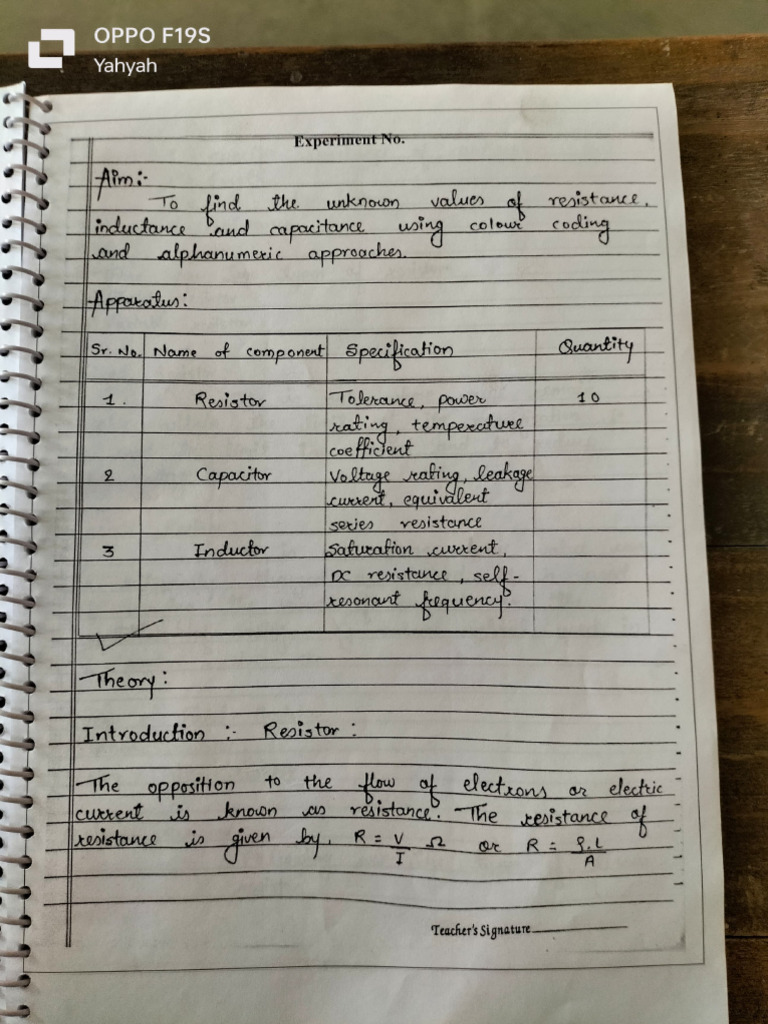 OPPO F19S
Yahyah
Experiment No.
Aim:-
To find the unknown values of resistance,
inductance and capacitance using colour coding
and alphanumeric approaches.
Apparatus:
Sr. No. Name of component Specification Quantity
1. Resistor Tolerance, power 10
rating, temperature
coefficient
2 Capacitor Voltage rating, leakage
current, equivalent
series resistance
3 Inductor Saturation current,
DC resistance, self-
resonant frequency.
Theory:
Introduction :- Resistor :
The opposition to the flow of electrons or electric
current is known as resistance. The resistance of
resistance is given by, R = V/I Ω or R = ρ.L/A
Teacher's Signature